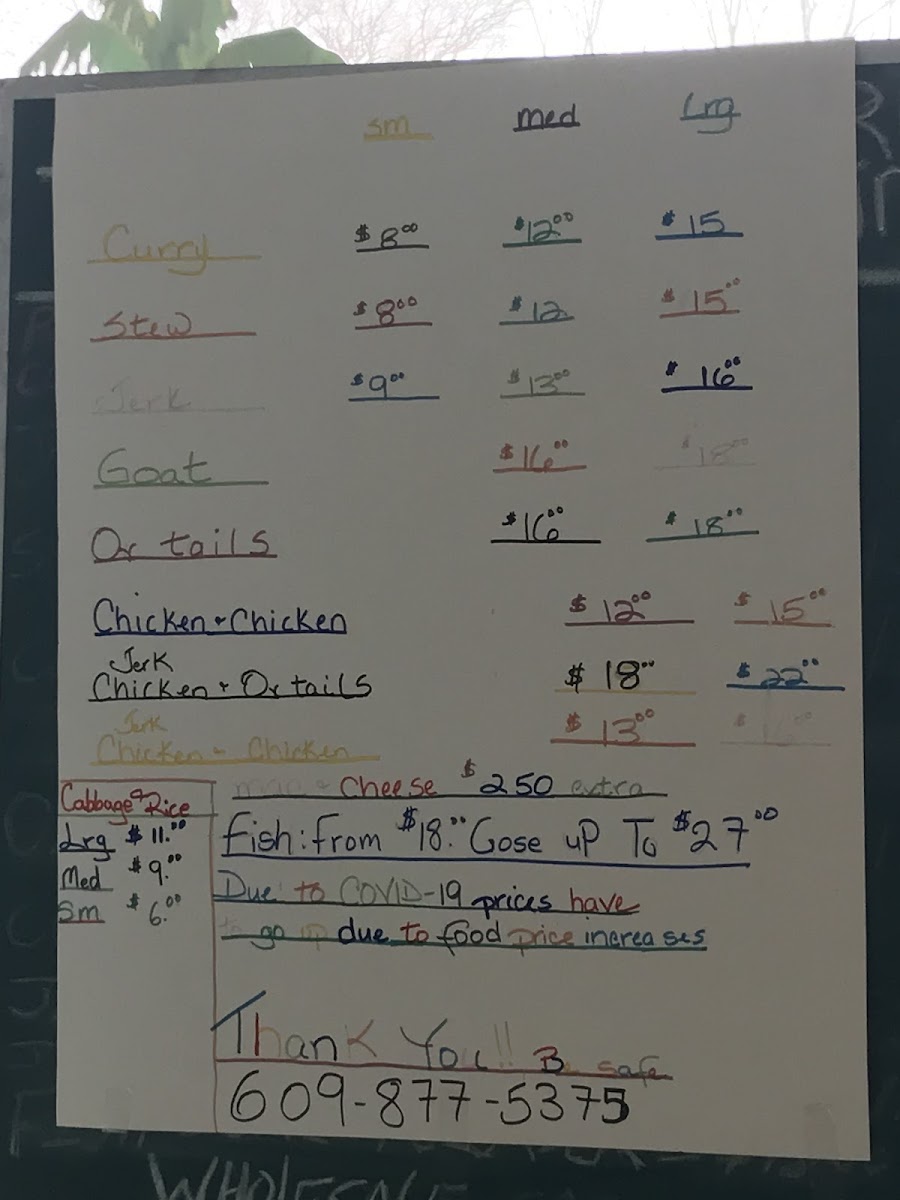 sm med Lrg
Curry $8.00 $12.00 $15
Stew $8.00 $12 $15.00
Jerk $9.00 $13.00 $16.00
Goat $16.00 $18.00
Ox tails $16.00 $18.00
Chicken + Chicken $12.00 $15.00
Jerk
Chicken + Ox tails $18.00 $22.00
Jerk
Chicken - Chicken $13.00 $16.00
Cabbage & Rice
Lrg $11.00
Med $9.00
Sm $6.00
mac + Cheese $2.50 extra
fish: from $18.00 Gose uP To $27.00
Due to COVID-19 prices have
to go up due to food price increases
Thank You!! B safe
609-877-5375
WHOLE